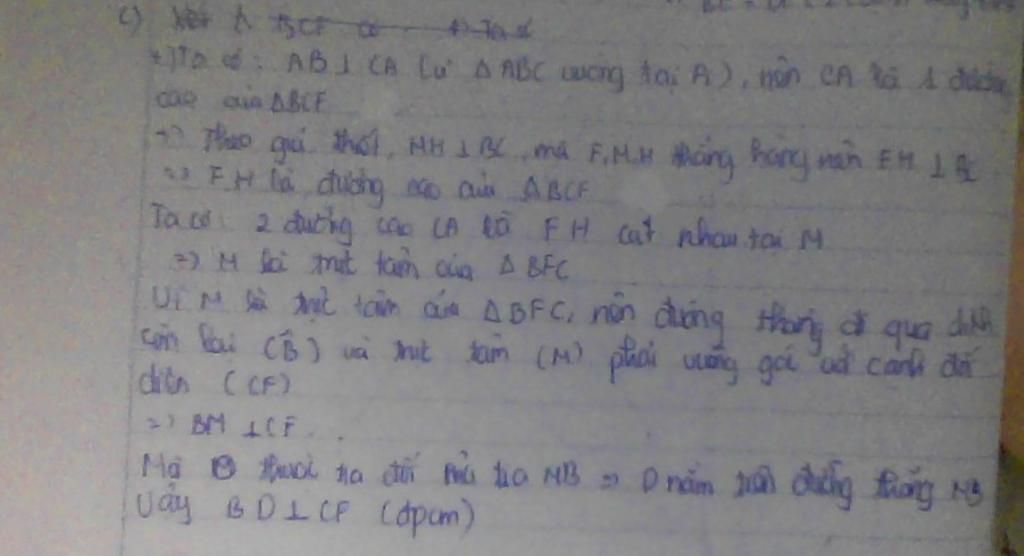 c)
+) Ta có: AB ⊥ CA (vì Δ ABC vuông tại A), nên CA là 1 đường
cao của ΔBCF
=> Theo giả thiết, MH ⊥ BC, mà F, M, H thẳng hàng nên FH ⊥ BC
=> FH là đường cao của ΔBCF
Ta có: 2 đường cao CA và FH cắt nhau tại M
=> M là trực tâm của Δ BFC
Vì M là trực tâm của ΔBFC, nên đường thẳng đi qua đỉnh
còn lại (B) và trực tâm (M) phải vuông góc với cạnh đối
diện (CF)
=> BM ⊥ CF.
Mà D thuộc tia đối của tia MB => D nằm trên đường thẳng MB
Vậy BD ⊥ CF (đpcm)